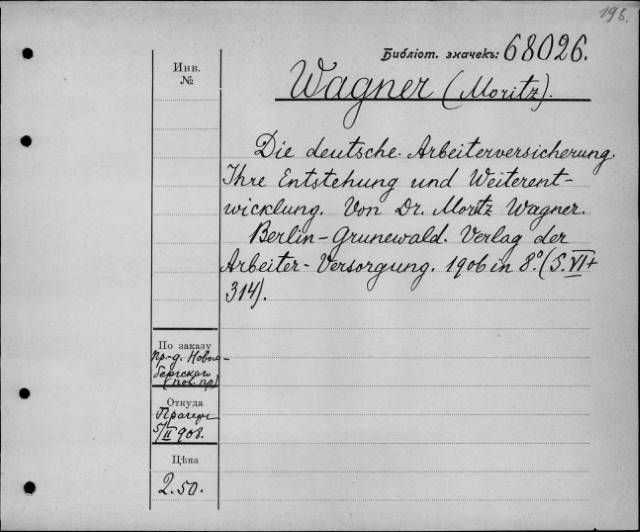 196.
Библіот. значекъ: 68026.
Инв.
№
Wagner (Moritz).
Die deutsche Arbeiterversicherung.
Ihre Entstehung und Weiterent-
wicklung. Von Dr. Moritz Wagner.
Berlin-Grunewald. Verlag der
Arbeiter-Versorgung. 1906 in 8.° (S. VI+
314).
По заказу
пр-д.
Откуда
5/II 908.
Цѣна
2.50.